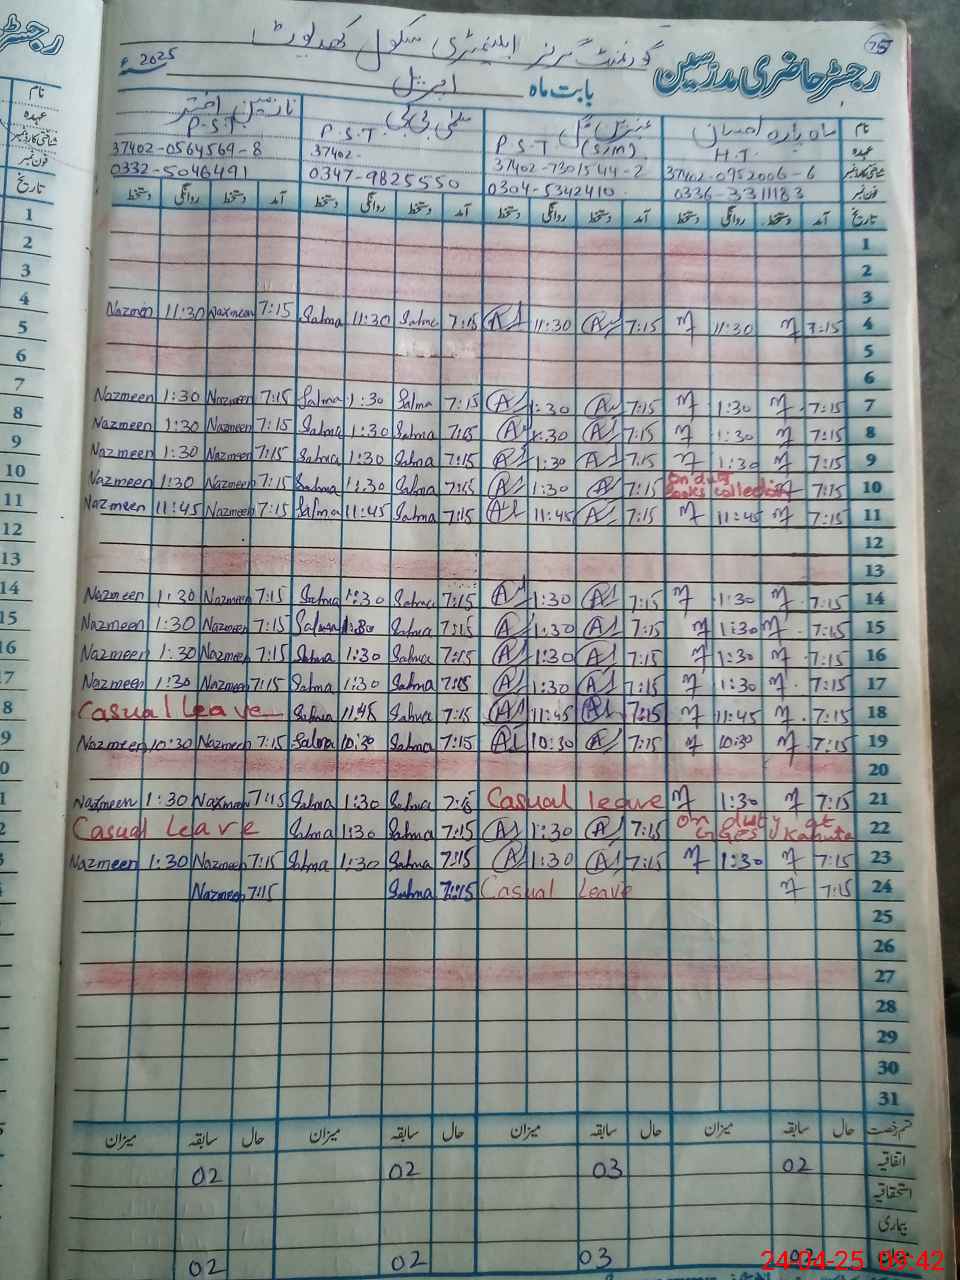 75
رجسٹر حاضری مدرسین
گورنمنٹ گرلز ایلیمنٹری سکول
بابت ماہ اپریل 2025ء
نام ماہ پارہ سلمیٰ بی بی نازمین اختر
عہدہ H.T. P.S.T. (S/M) P.S.T. P.S.T.
شناختی کارڈ نمبر 37402-0952006-6 37402-7301544-2 37402- 37402-0564564-8
فون نمبر 0336-3311183 0304-5342410 0347-9825550 0332-5046491
تاریخ آمد دستخط روانگی دستخط آمد دستخط روانگی دستخط آمد دستخط روانگی دستخط آمد دستخط روانگی دستخط
1
2
3
4 7:15 11:30 7:15 11:30 7:15 Salma 11:30 Salma 7:15 Nazmeen 11:30 Nazmeen
5
6
7 7:15 1:30 7:15 1:30 7:15 Salma 1:30 Salma 7:15 Nazmeen 1:30 Nazmeen
8 7:15 1:30 7:15 1:30 7:15 Salma 1:30 Salma 7:15 Nazmeen 1:30 Nazmeen
9 7:15 1:30 7:15 1:30 7:15 Salma 1:30 Salma 7:15 Nazmeen 1:30 Nazmeen
10 7:15 On duty books collection 7:15 1:30 7:15 Salma 1:30 Salma 7:15 Nazmeen 1:30 Nazmeen
11 7:15 11:45 7:15 11:45 7:15 Salma 11:45 Salma 7:15 Nazmeen 11:45 Nazmeen
12
13
14 7:15 1:30 7:15 1:30 7:15 Salma 1:30 Salma 7:15 Nazmeen 1:30 Nazmeen
15 7:15 1:30 7:15 1:30 7:15 Salma 1:30 Salma 7:15 Nazmeen 1:30 Nazmeen
16 7:15 1:30 7:15 1:30 7:15 Salma 1:30 Salma 7:15 Nazmeen 1:30 Nazmeen
17 7:15 1:30 7:15 1:30 7:15 Salma 1:30 Salma 7:15 Nazmeen 1:30 Nazmeen
18 7:15 11:45 7:15 11:45 7:15 Salma 11:45 Salma Casual leave
19 7:15 10:30 7:15 10:30 7:15 Salma 10:30 Salma 7:15 Nazmeen 10:30 Nazmeen
20
21 7:15 1:30 Casual leave 7:15 Salma 1:30 Salma 7:15 Nazmeen 1:30 Nazmeen
22 On duty at GGES Kahuta 7:15 1:30 7:15 Salma 1:30 Salma Casual Leave
23 7:15 1:30 7:15 1:30 7:15 Salma 1:30 Salma 7:15 Nazmeen 1:30 Nazmeen
24 7:15 Casual leave 7:15 Salma 7:15 Nazmeen
25
26
27
28
29
30
31
قسم رخصت حال سابقہ میزان حال سابقہ میزان حال سابقہ میزان حال سابقہ میزان
اتفاقیہ 02 03 02 02
استحقاقیہ
بیماری
02 03 02 02
24-04-25 09:42